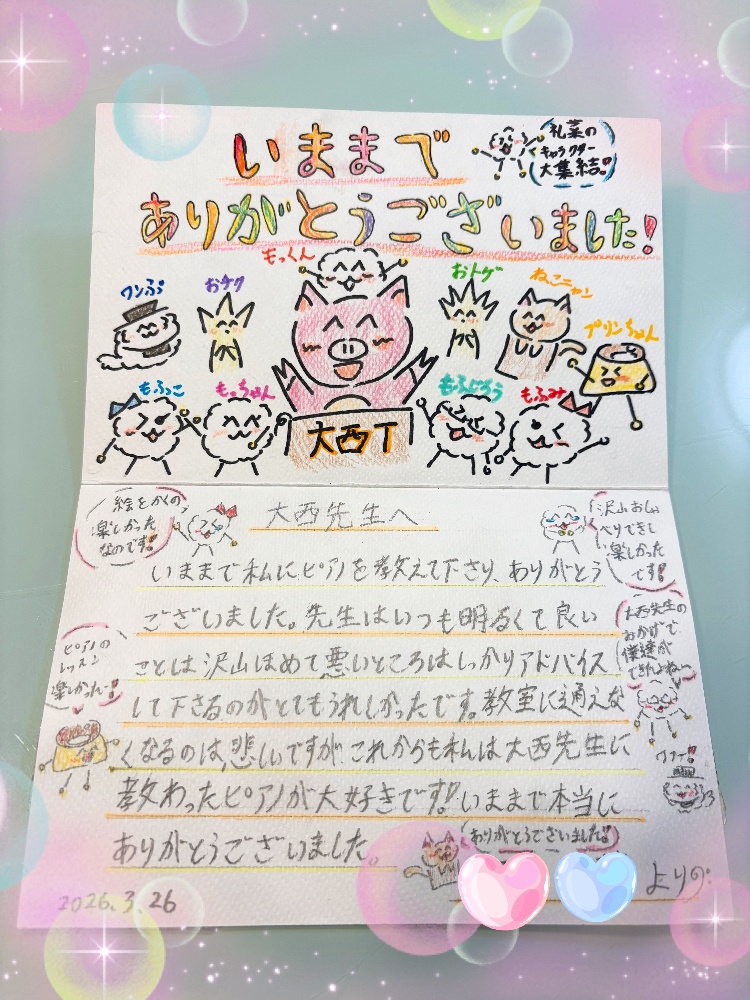 いままで
礼菜の
キャラクター
大集結!!
ありがとうございました!
もっくん
ワンぷ
おチク
おトゲ
ねこニャン
プリンちゃん
もふっこ
もっちゃん
もふじろう
もふみ
大西T
絵をかくの、
楽しかった
なのです!!
大西先生へ
沢山おしゃ
べりできて
楽しかった
です!!
いままで私にピアノを教えて下さり、ありがとう
ございました。先生はいつも明るくて良い
ことは沢山ほめて悪いところはしっかりアドバイス
して下さるのがとてもうれしかったです。教室に通えな
くなるのは、悲しいですが、これからも私は大西先生に
教わったピアノが大好きです!!いままで本当に
ありがとうございました。
ピアノの
レッスン
楽しかったー!!
大西先生の
おかげで
僕達が
できたよね〜
ワフー!!
ありがとうございました!!
より
2026.3.26